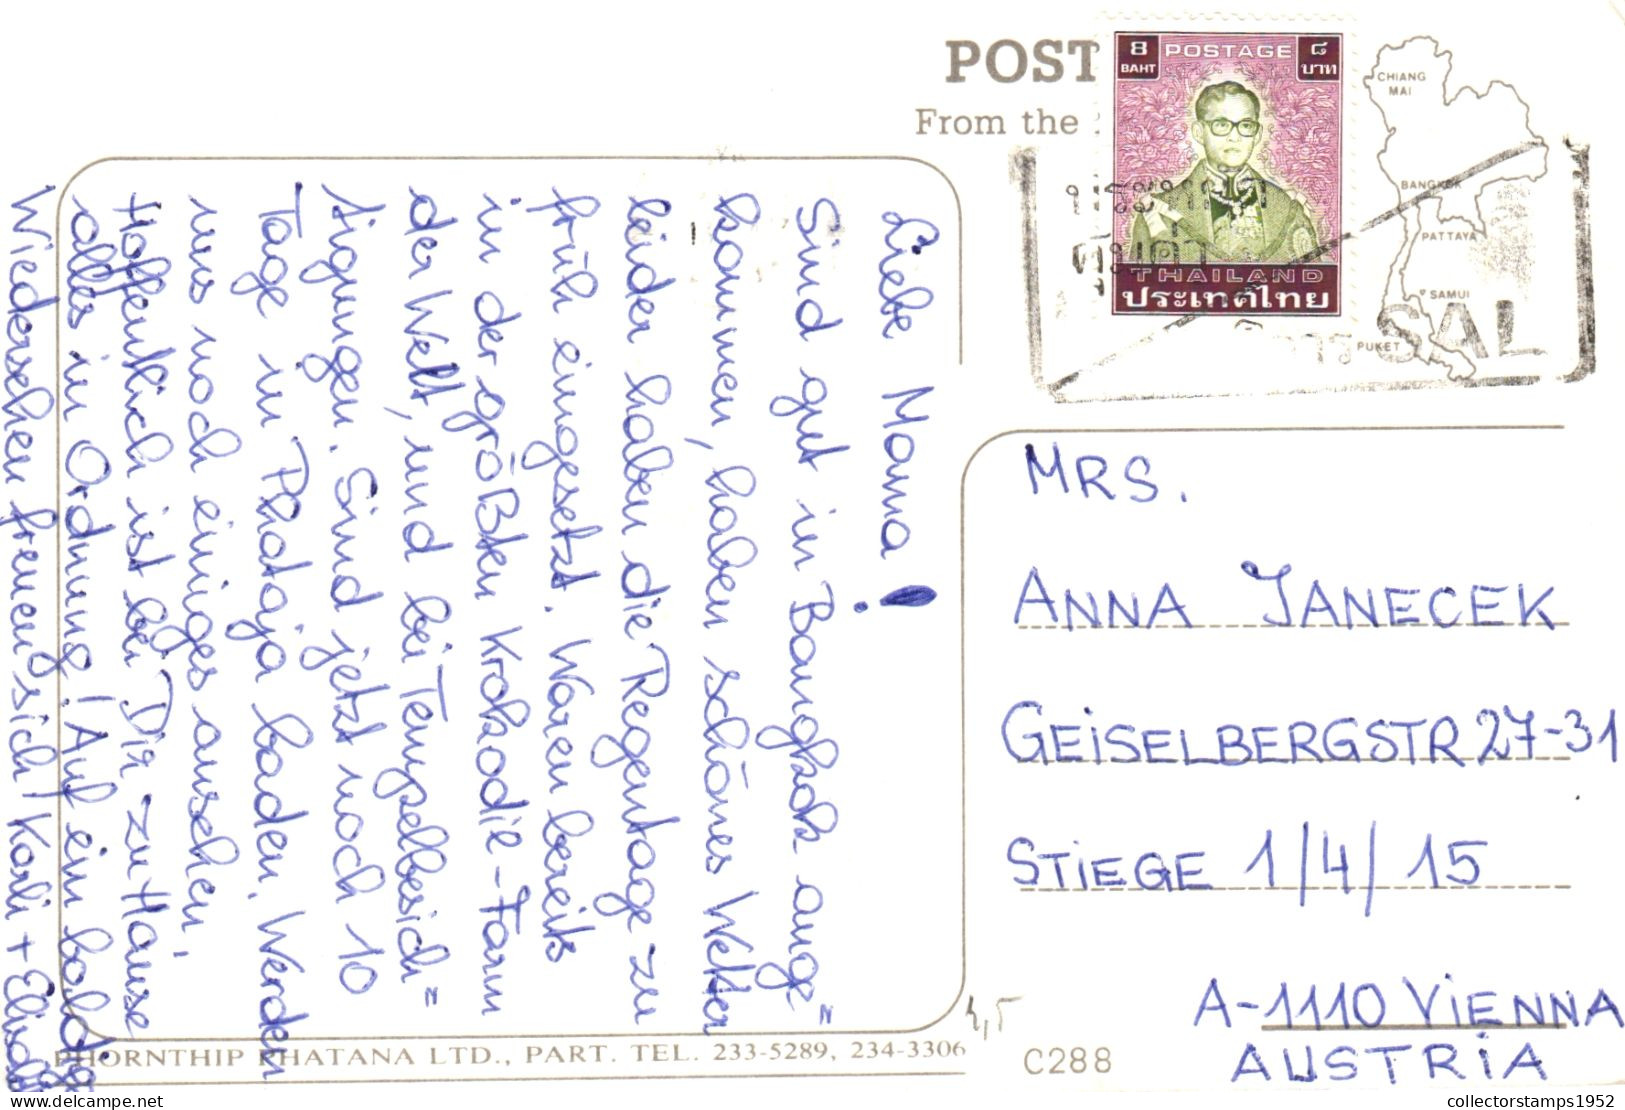 POST
From the
8 POSTAGE ๘
BAHT บาท
THAILAND
ประเทศไทย
CHIANG
MAI
BANGKOK
PATTAYA
SAMUI
PUKET
SAL
Liebe Mama!
Sind gut in Bangkok ange=
kommen, haben schönes Wetter
leider haben die Regentage zu
früh eingesetzt. Waren bereits
in der größten Krokodil-Farm
der Welt, und bei Tempelbesich=
tigungen. Sind jetzt noch 10
Tage in Phataja baden. Werden
uns noch einiges ansehen,
Hoffentlich ist bei Dir zu Hause
alles in Ordnung! Auf ein baldig
Wiedersehen freuen sich! Karli + Elinde
MRS.
ANNA JANECEK
GEISELBERGSTR 27-31
STIEGE 1/4/15
A-1110 VIENNA
AUSTRIA
4,5
PHORNTHIP PHATANA LTD., PART. TEL. 233-5289, 234-3306
C288
collectorstamps1952